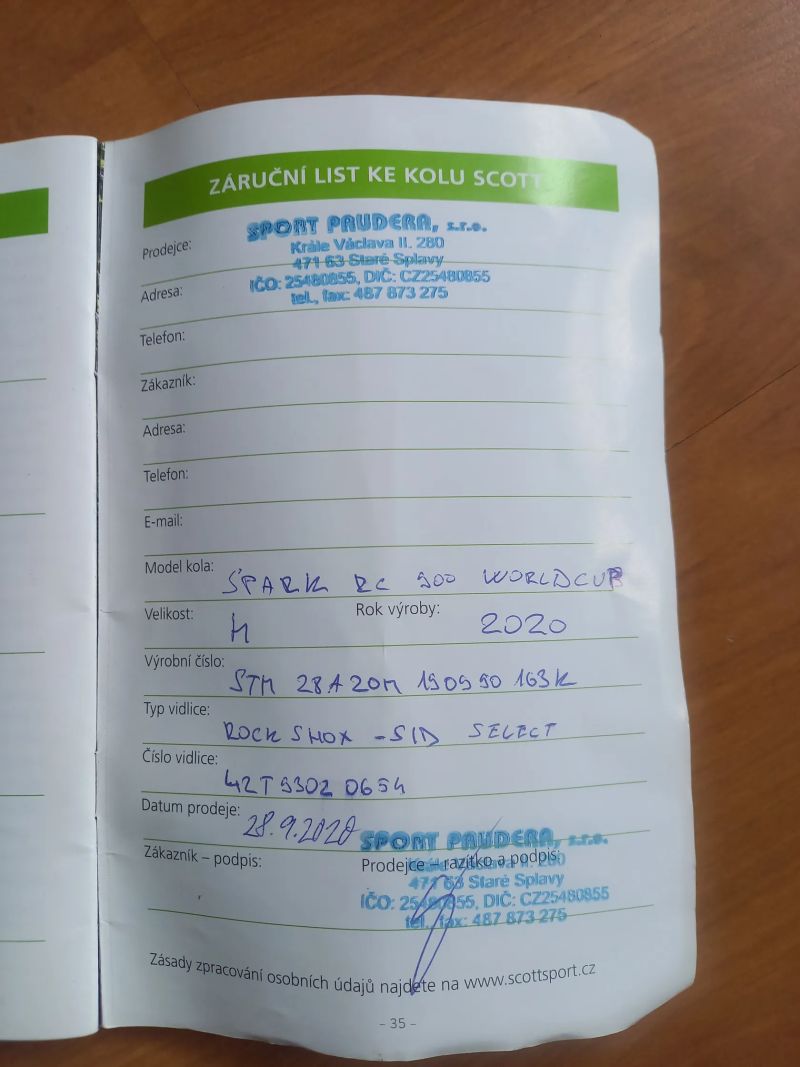 ZÁRUČNÍ LIST KE KOLU SCOTT
SPORT PAUDERA, s.r.o.
Prodejce:
Krále Václava II. 280
471 63 Staré Splavy
Adresa:
IČO: 25480855, DIČ: CZ25480855
tel., fax: 487 873 275
Telefon:
Zákazník:
Adresa:
Telefon:
E-mail:
Model kola: SPARK RC 900 WORLDCUP
Velikost: M Rok výroby: 2020
Výrobní číslo: STM 28A20M 190990 163K
Typ vidlice: ROCK SHOX - SID SELECT
Číslo vidlice: 42T93020654
Datum prodeje: 28.9.2020
SPORT PAUDERA, s.r.o.
Zákazník – podpis: Prodejce – razítko a podpis:
Krále Václava II. 280
471 63 Staré Splavy
IČO: 25480855, DIČ: CZ25480855
tel., fax: 487 873 275
Zásady zpracování osobních údajů najdete na www.scottsport.cz
– 35 –